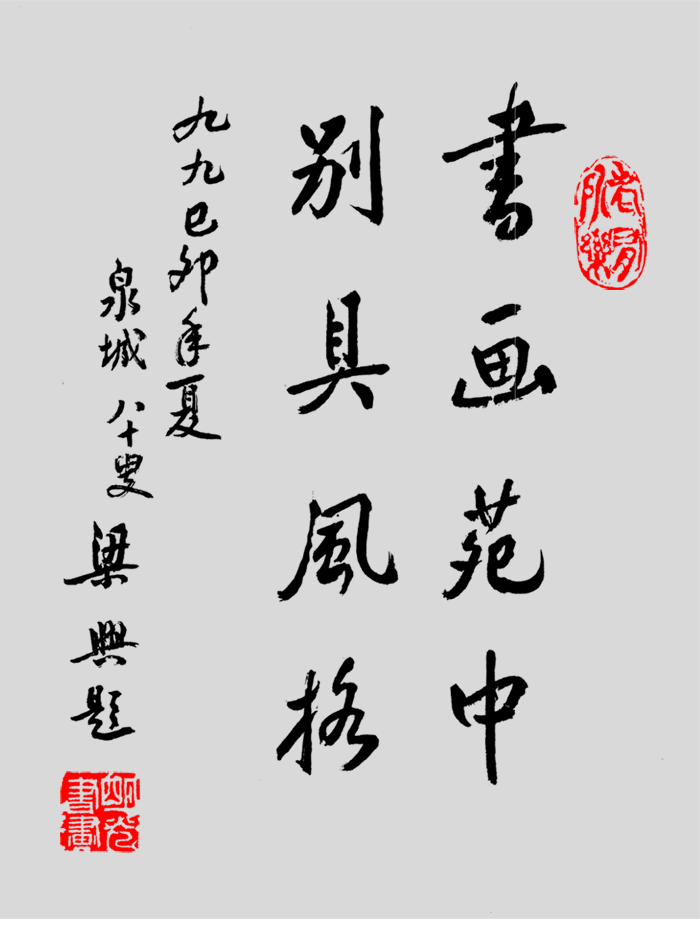 書画苑中
別具風格
九九己卯年夏
泉城八十叟
梁興題